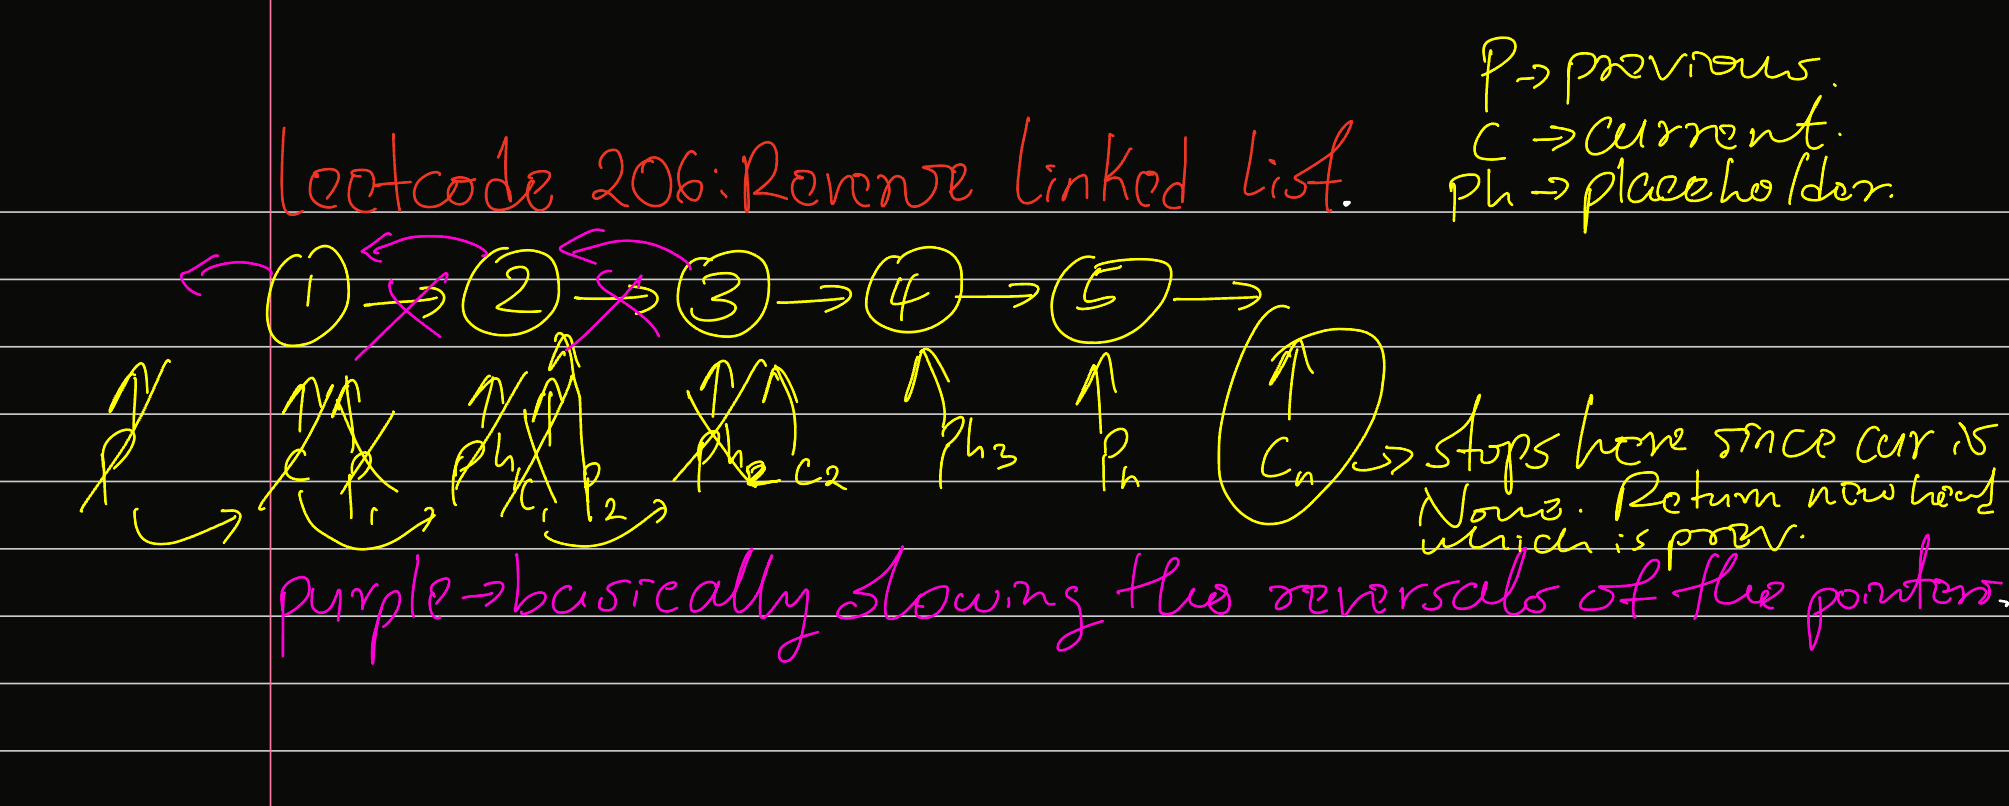 P → previous.
C → current.
Ph → placeholder.
Leetcode 206: Reverse Linked List.
1 → 2 → 3 → 4 → 5 →
P C P1 Ph C1 P2 Ph2 C2 Ph3 Pn Cn → stops here since cur is
None. Return new head
which is prev.
purple → basically showing the reversals of the pointers.